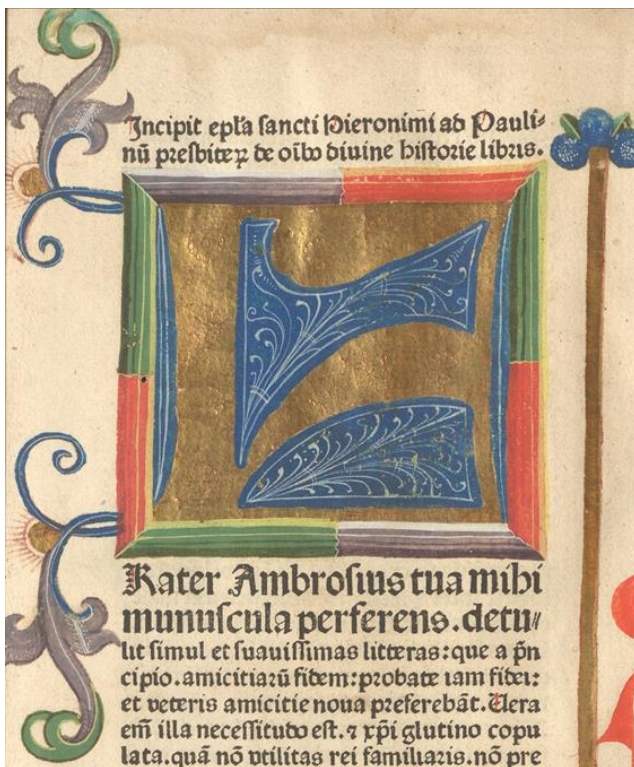 Incipit epl̃a sancti Hieronimi ad Pauli⸗
nū presbiteꝝ de oībꝰ diuine historie libris.
F
Rater Ambrosius tua mihi
munuscula perferens. detu⸗
lit simul et suauissimas litteras: que a pͥn
cipio. amicitiarū fidem: probate iam fidei:
et veteris amicitie noua preferebāt. Uera
em̄ illa necessitudo est. ⁊ xp̄i glutino copu
lata. quā nō vtilitas rei familiaris. nō pre